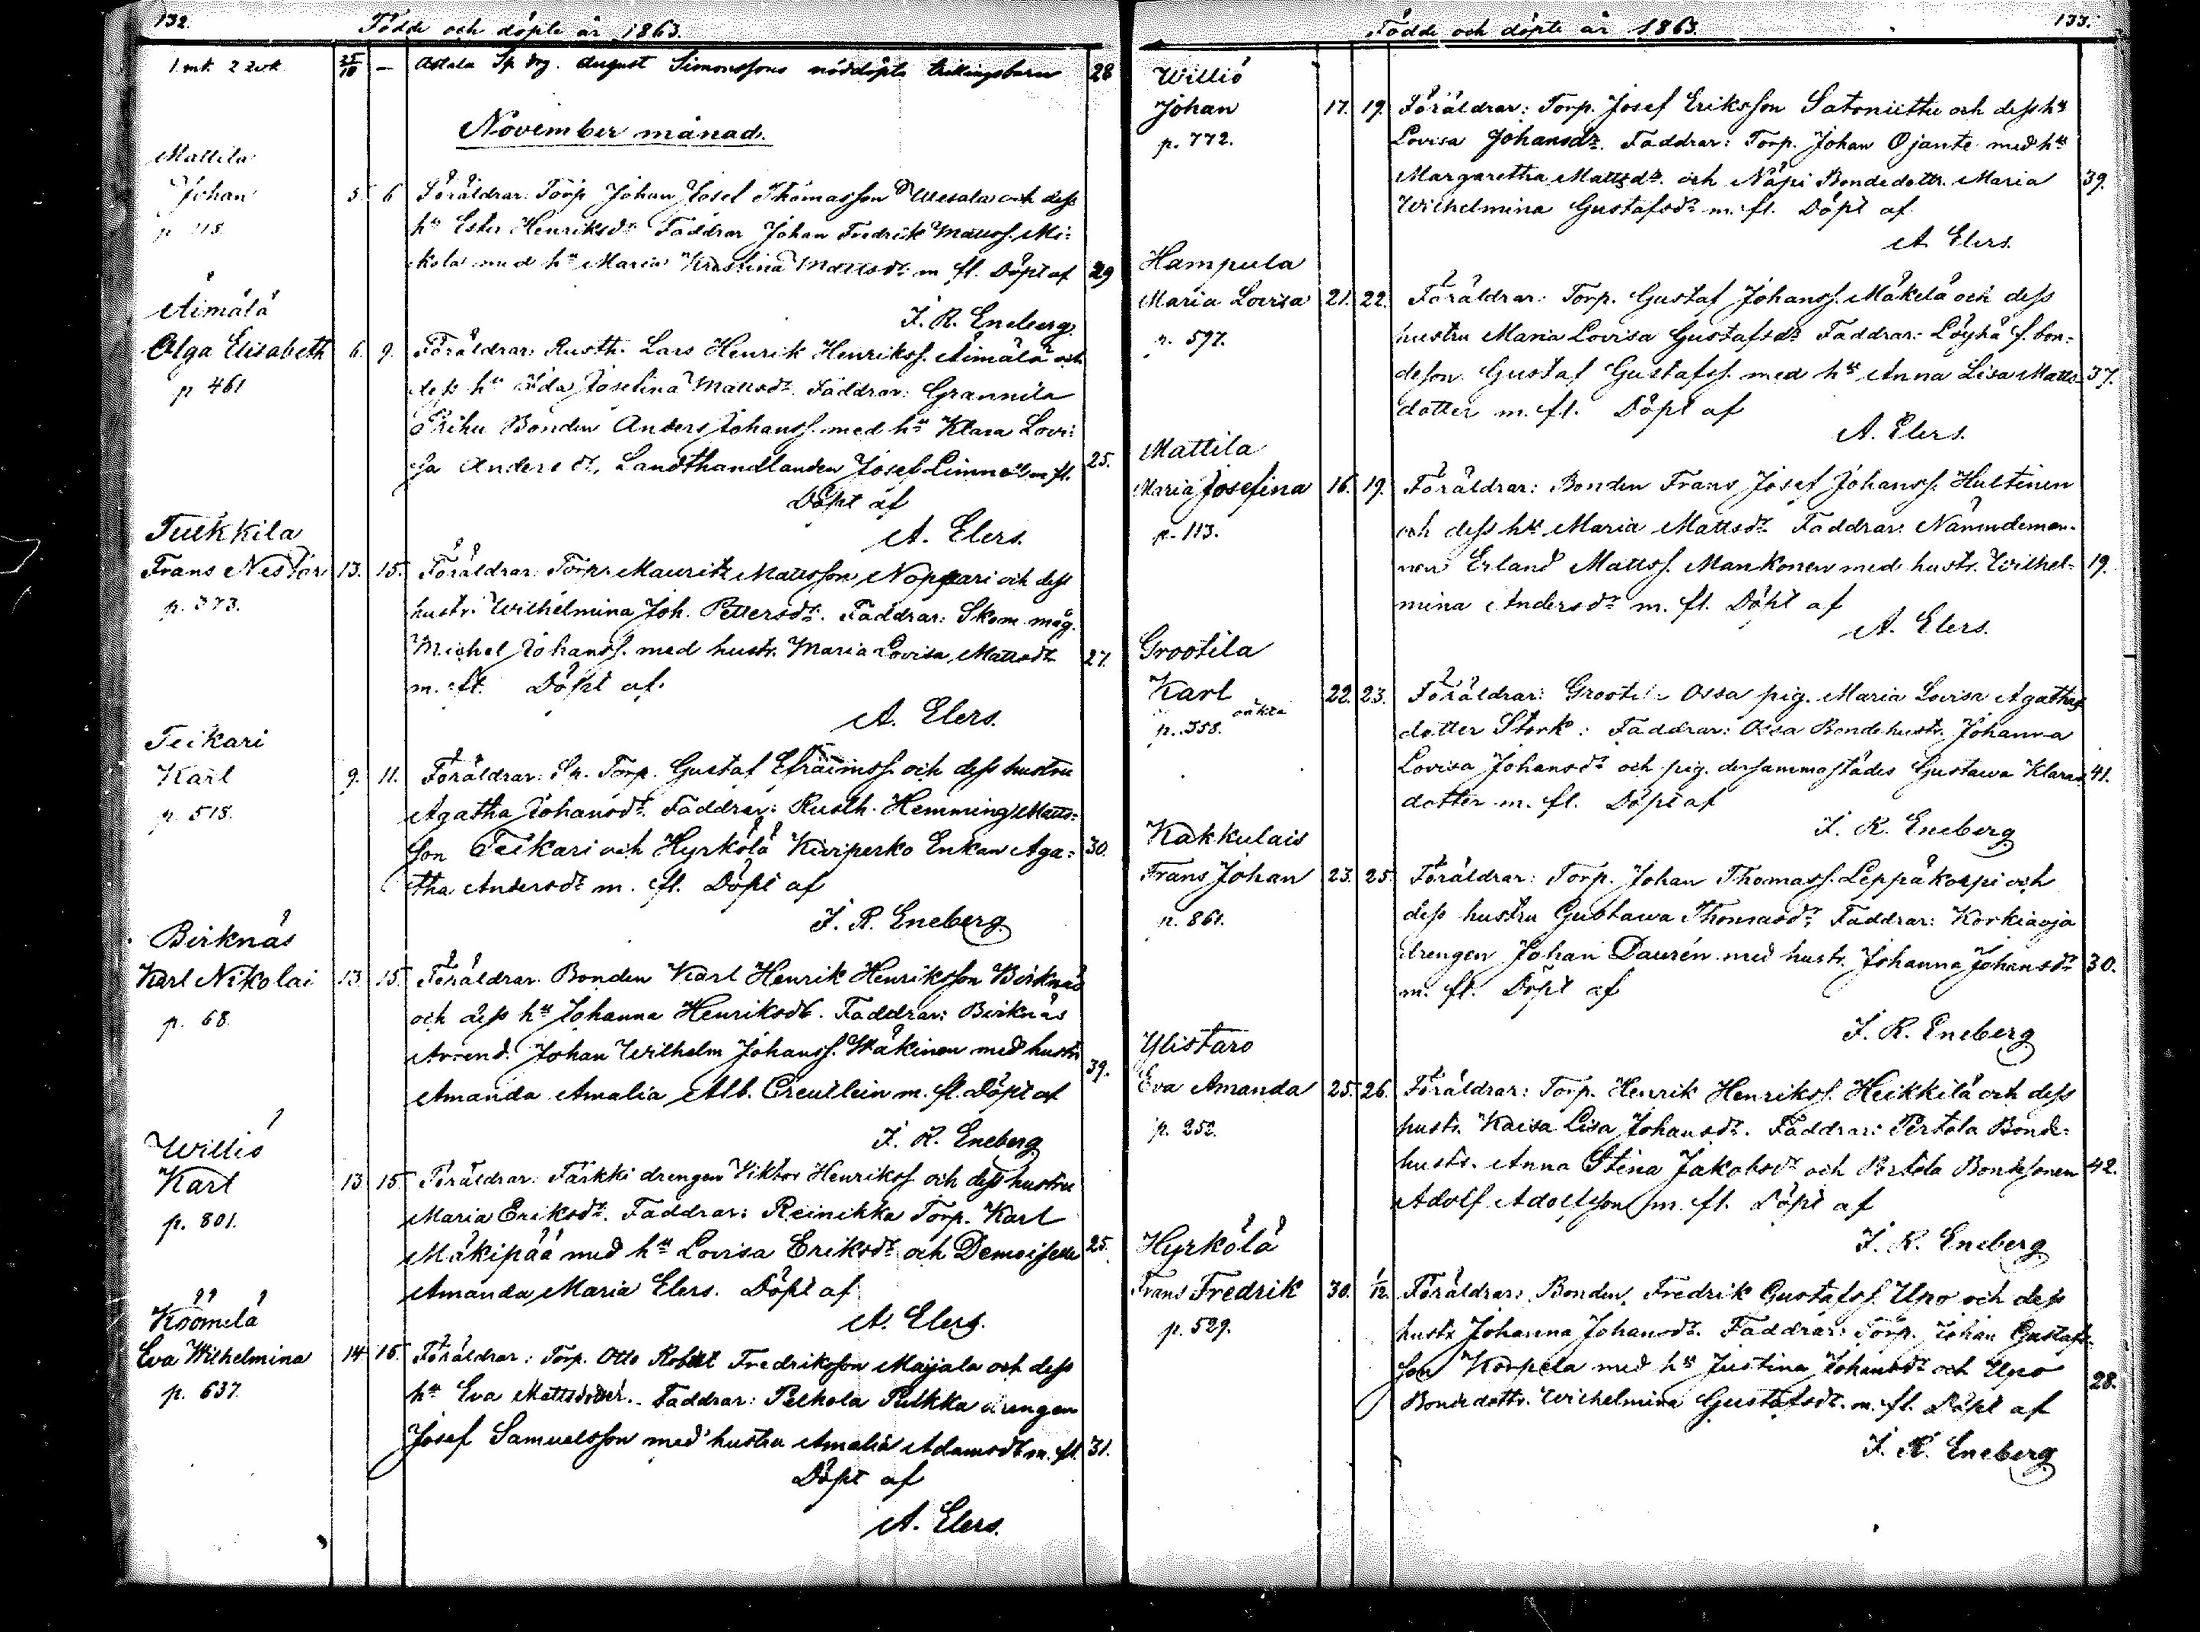 132.
Födde och döpte år 1863.
1 mk. 2 qvk. 25/10 — Astala Sp. drg. August Simonssons nöddöpta trillingsbarn 28
November månad.
Mattila
Johan 5 6 Föräldrar: Torp. Johan Josef Thomasson Uusatalo och dess
p. 118. hu Ester Henriksdr Faddrar Johan Fredrik Mattss. Mi-
kola med hu Maria Kristina Mattsdr m. fl. Döpt af 29
F. R. Eneberg.
Äimälä
Olga Elisabeth 6. 9. Föräldrar: Rusth. Lars Henrik Henrikss. Äimälä och
p 461 dess hu Ida Josefina Mattsdr. Faddrar: Grannila
Prihu Bonden Anders Johanss. med hu Klara Lovi-
sa Andersdr, Landthandlanden Josef Linnell m. fl. 25.
Döpt af
A. Elers.
Tuikkila
Frans Nestor 13. 15. Föräldrar: Torp. Maurits Mattsson Noppari och dess
p. 373. hustr. Wilhelmina Joh. Pettersdr. Faddrar: Skom. mäg.
Michel Johanss. med hustr. Maria Lovisa Mattsdr 27.
m. fl. Döpt af.
A. Elers.
Teikari
Karl 9. 11. Föräldrar: Sp. Torp. Gustaf Efraimss. och dess hustru
p. 518. Agatha Johansdr. Faddrar: Rusth. Hemming Matts-
son Teikari och Hyrkölä Kiviperko Enkan Aga- 30.
tha Andersdr m. fl. Döpt af
F. R. Eneberg
Birknäs
Karl Nikolai 13. 15. Föräldrar. Bonden Karl Henrik Henriksson Birknäs
p. 68. och dess hu Johanna Henriksdr. Faddrar: Birknäs
Arrend. Johan Wilhelm Johanss. Wäkinen med hustr
Amanda Amalia Alb. Creutlein m. fl. Döpt af 39.
F. R. Eneberg
Williö
Karl 13 15 Föräldrar: Tärkki drengen Viktor Henrikss och dess hustru
p. 801. Maria Eriksdr. Faddrar: Reinikka Torp. Karl
Mäkipää med hu Lovisa Eriksdr och Demoiselle 25.
Amanda Maria Elers. Döpt af
A. Elers.
Köömelä
Eva Wilhelmina 14 16. Föräldrar: Torp. Otto Robert Fredriksson Maijala och dess
p. 637. hu Eva Mattsdotter. Faddrar: Pelkola Pulkka drengen
Josef Samuelsson med hustru Amalia Adamsdr m. fl. 31.
Döpt af
A. Elers.
133.
Födde och döpte år 1863.
Williö
Johan 17. 19. Föräldrar: Torp. Josef Eriksson Satoniittu och dess hu
p. 772. Lovisa Johansdr. Faddrar: Torp. Johan Ojante med hu
Margaretha Mattsdr. och Näpi Bondedottr. Maria 39.
Wilhelmina Gustafsdr m. fl. Döpt af
A. Elers.
Hampula
Maria Lovisa 21. 22. Föräldrar: Torp. Gustaf Johanss. Mäkelä och dess
p. 597. hustru Maria Lovisa Gustafsdr Faddrar: Löyhä f. bon-
deson Gustaf Gustafss. med hu Anna Lisa Matts- 37.
dotter m. fl. Döpt af
A. Elers.
Mattila
Maria Josefina 16. 19. Föräldrar: Bonden Frans Josef Johanss. Hultinen
p. 113. och dess hu Maria Mattsdr Faddrar: Nämndeman-
nen Erland Mattss. Mankonen med hustr. Wilhel- 19.
mina Andersdr m. fl. Döpt af
A. Elers.
Grootila
Karl 22. 23. Föräldrar: Grootila Ossa pig. Maria Lovisa Agathas
oäkta
p. 358. dotter Stork: Faddrar: Ossa Bondehustr. Johanna
Lovisa Johansdr och pig. dersammastädes Gustava Klaras 41.
dotter m. fl. Döpt af
F. R. Eneberg
Kakkulais
Frans Johan 23. 25 Föräldrar: Torp. Johan Thomass. Leppäkorpi och
p. 861. dess hustru Gustawa Thomasdr Faddrar: Korkiaoja
drengen Johan Daurén med hustr. Johanna Johansdr 30.
m. fl. Döpt af
F. R. Eneberg
Ylistaro
Eva Amanda 25. 26. Föräldrar: Torp. Henrik Henrikss. Heikkilä och dess
p. 252. hustr. Kaisa Lisa Johansdr. Faddrar: Pertola Bonde-
hustr. Anna Stina Jakobsdr och Pertola Bondesonen 42.
Adolf Adolfsson m. fl. Döpt af
F. R. Eneberg
Hyrkölä
Frans Fredrik 30. 1/12 Föräldrar: Bonden Fredrik Gustafss. Upo och dess
p. 529. hustr Johanna Johansdr. Faddrar: Torp. Johan Gustafs-
son Korpela med hu Justina Johansdr och Upo
Bondedottr. Wilhelmina Gustafsdr. m. fl. Döpt af 28.
F. R. Eneberg